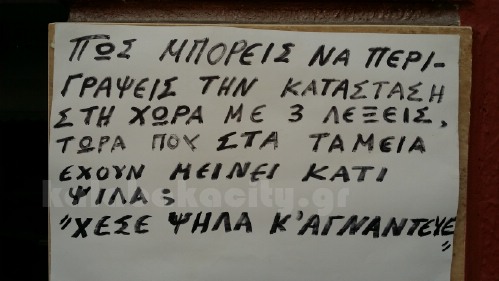 ΠΩΣ ΜΠΟΡΕΙΣ ΝΑ ΠΕΡΙ-
ΓΡΑΨΕΙΣ ΤΗΝ ΚΑΤΑΣΤΑΣΗ
ΣΤΗ ΧΩΡΑ ΜΕ 3 ΛΕΞΕΙΣ,
ΤΩΡΑ ΠΟΥ ΣΤΑ ΤΑΜΕΙΑ
ΕΧΟΥΝ ΜΕΙΝΕΙ ΚΑΤΙ
ΨΙΛΑ;
"ΧΕΣΕ ΨΗΛΑ Κ'ΑΓΝΑΝΤΕΥΕ"